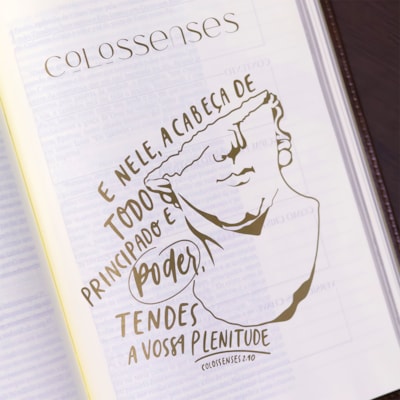 COLOSSENSES
E NELE, A CABEÇA DE
TODO
PRINCIPADO E
PODER,
TENDES
A VOSSA PLENITUDE
COLOSSENSES 2.10